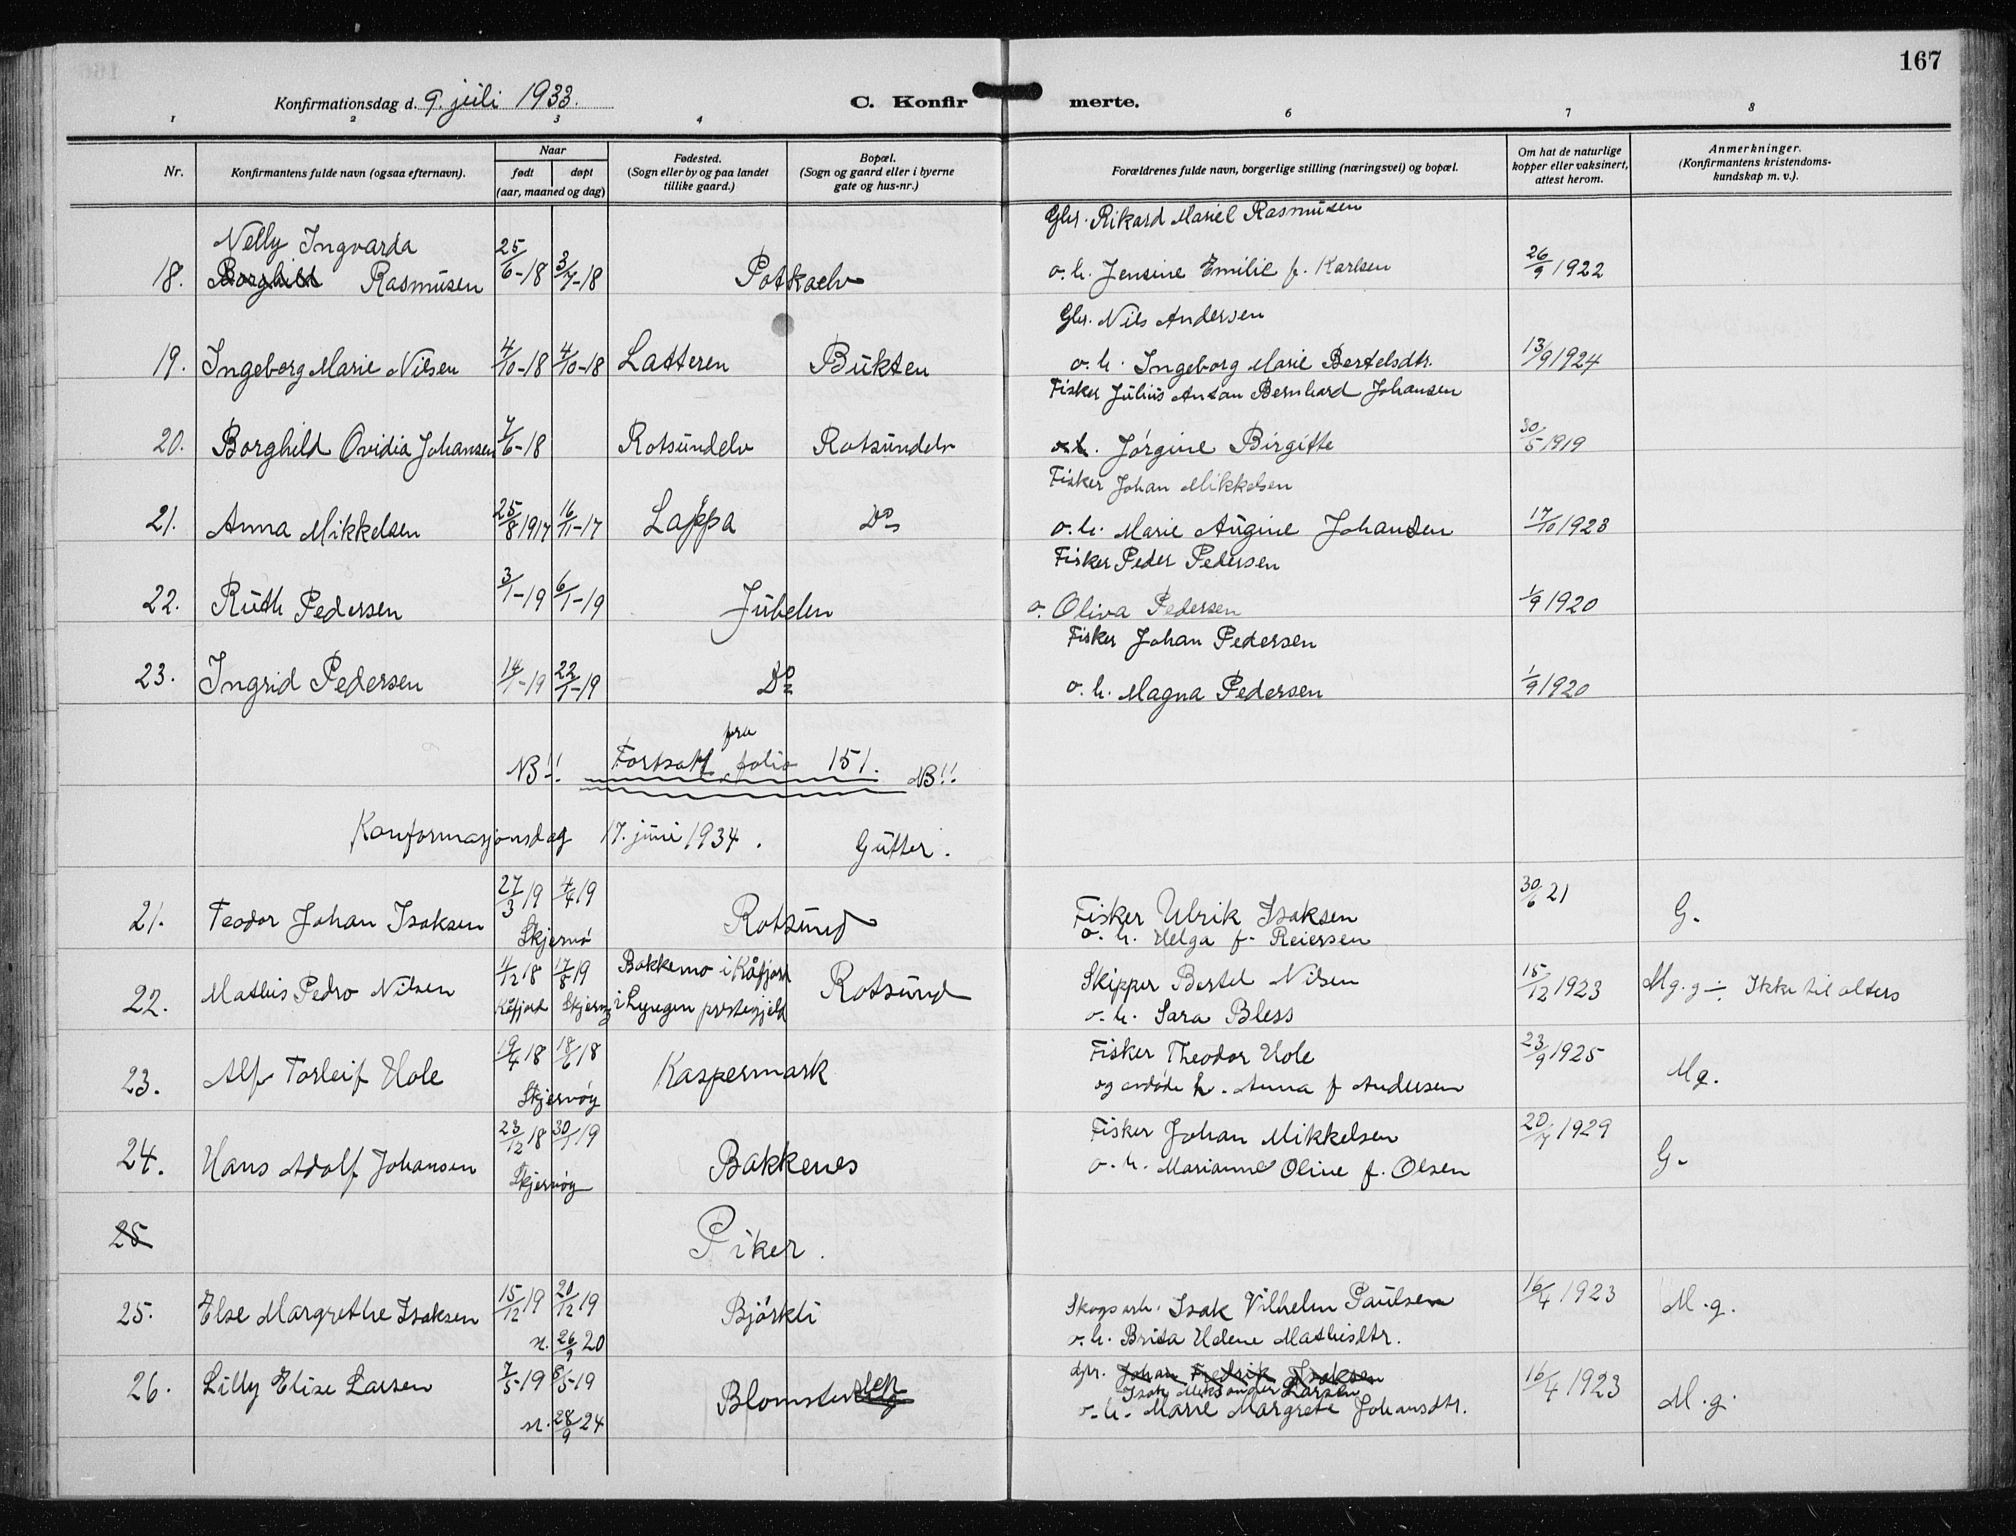 167
Konfirmationsdag d. 9. juli 1933. C. Konfirmerte.
1 2 3 4 6 7 8
Nr. Konfirmantens fulde navn (ogsaa efternavn). Naar født døpt (aar, maaned og dag) Fødested. (Sogn eller by og paa landet tillike gaard.) Bopæl. (Sogn og gaard eller i byerne gate og hus-nr.) Forældrenes fulde navn, borgerlige stilling (næringsvei) og bopæl. Om hat de naturlige kopper eller vaksinert, attest herom. Anmerkninger. (Konfirmantens kristendoms-kundskap m. v.).
Nelly Ingvarda Gbr. Rikard Mariel Rasmusen
18. Borghild Rasmusen 25/6-18 3/7-18 Potkaelv o. h. Jensine Emilie f. Karlsen 26/9 1922
Gbr. Nils Andersen
19. Ingeborg Marie Nilsen 4/10-18 4/10-18 Latteren Bukten o. h. Ingeborg Marie Bertelsdtr. 13/9 1924
Fisker Julius Antan Bernhard Johansen
20. Borghild Ovidia Johansen 7/6-18 Rotsundelv Rotsundelv o. h. Jørgine Birgitte 30/5 1919
Fisker Johan Mikkelsen
21. Anna Mikkelsen 25/8 1917 16/11-17 Lappa Do o. h. Marie Augine Johansen 17/10 1923
Fisker Peder Pedersen
22. Ruth Pedersen 3/1-19 6/1-19 Jubelen o. Oliva Pedersen 1/9 1920
Fisker Johan Pedersen
23. Ingrid Pedersen 14/1-19 22/1-19 Do o. h. Magna Pedersen 1/9 1920
NB!! Fortsatt fra folio 151. NB!!
Konformasjonsdag 17. juni 1934. Gutter.
21. Teodor Johan Isaksen 27/3 19 4/4 19 Skjervø Rotsund Fisker Ulrik Isaksen 30/6 21 G.
o. h. Helga f. Reiersen
22. Mathis Pedro Nilsen 11/12 18 17/8 19 Bakkemo i Kåfjord Rotsund Skipper Bertel Nilsen 15/12 1923 Mg. g ÷. Ikke til alters
Kåfjord Skjervøy i Lyngen prestegjeld o. h. Sara Bless
23. Alf Torleif Hole 19/4 18 18/6 18 Skjervøy Kaspermark Fisker Theodor Hole 23/9 1925 Mg.
og avdøde h. Anna f Andersen
24. Hans Adolf Johansen 23/12 18 30/1 19 Skjervøy Bakkenes Fisker Johan Mikkelsen 20/7 1929 G.
o. h. Marianne Oline f. Olsen
25 Piker.
25. Else Margrethe Isaksen 15/12 19 20/12 19 Bjørkli Skogsarb. Isak Vilhelm Paulsen 16/4 1923 M.g.
n. 26/9 20 o. h. Brita Helene Mathisdtr.
26. Lilly Elise Larsen 7/5-19 8/5-19 Blomster gbr. Johan Fredrik Isaksen 16/4 1923 M.g.
Isak Aleksander Larsen
n. 28/9 24 o. h. Marie Margrete Johansdtr.